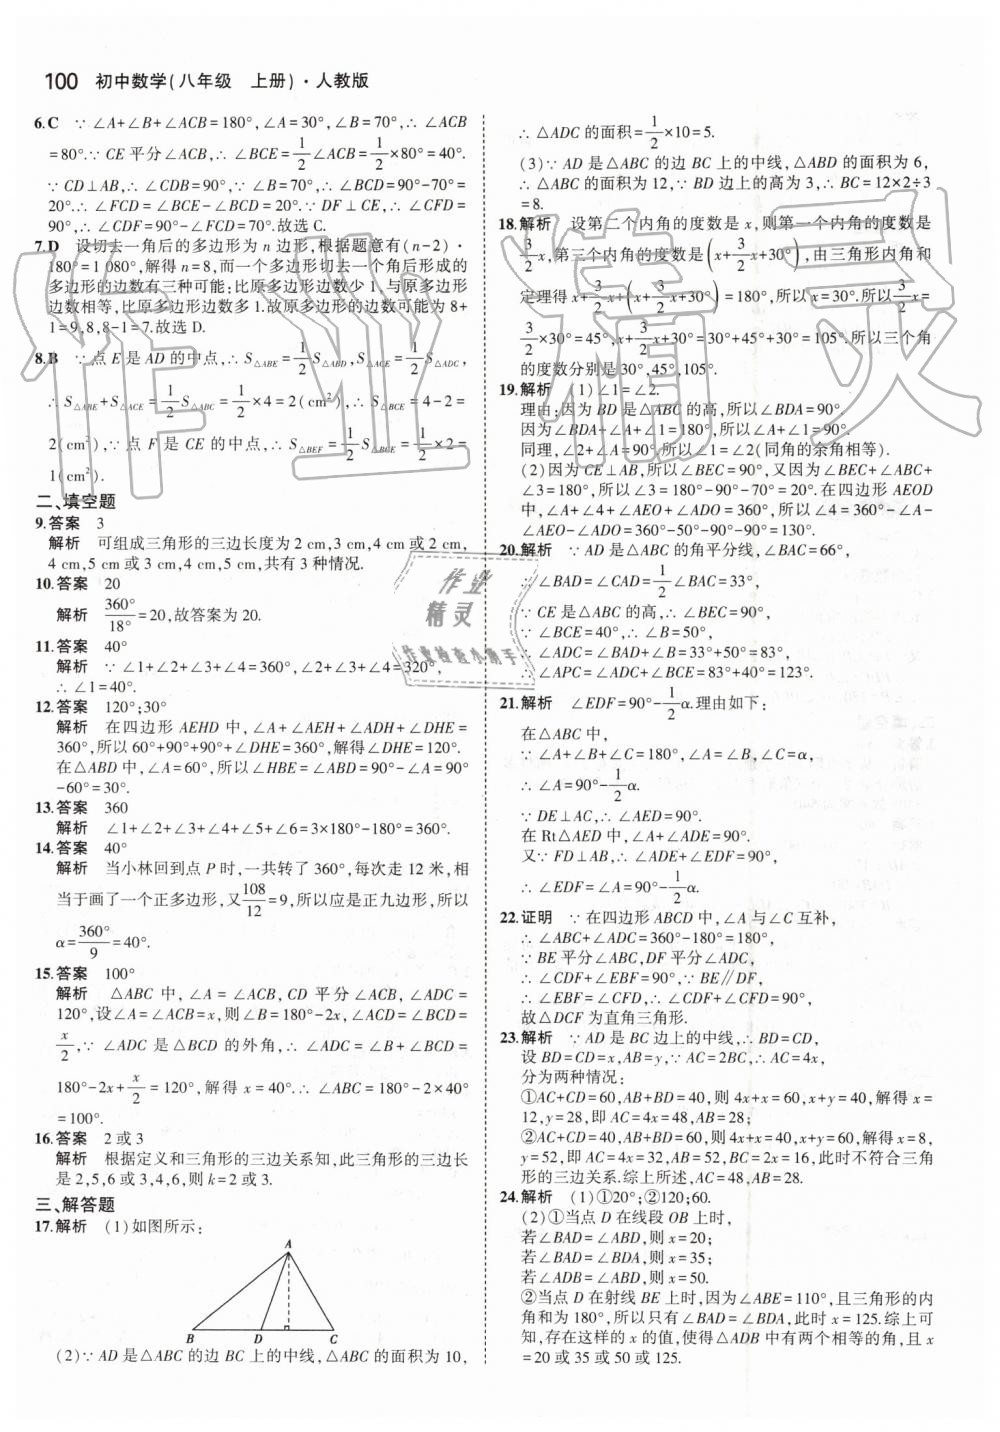 100 初中数学(八年级 上册)·人教版
6.C ∵∠A+∠B+∠ACB=180°,∠A=30°,∠B=70°,∴∠ACB
=80°.∵CE平分∠ACB,∴∠BCE=1/2∠ACB=1/2×80°=40°.
∵CD⊥AB,∴∠CDB=90°,∵∠B=70°,∴∠BCD=90°-70°=
20°.∴∠FCD=∠BCE-∠BCD=20°.∵DF⊥CE,∴∠CFD=
90°,∴∠CDF=90°-∠FCD=70°.故选C.
7.D 设切去一角后的多边形为n边形,根据题意有(n-2)·
180°=1 080°,解得n=8,而一个多边形切去一个角后形成的
多边形的边数有三种可能:比原多边形边数少1、与原多边形
边数相等、比原多边形边数多1.故原多边形的边数可能为8+
1=9,8,8-1=7.故选D.
8.B ∵点E是AD的中点,∴S△ABE=1/2S△ABD,S△ACE=1/2S△ADC,
∴S△ABE+S△ACE=1/2S△ABC=1/2×4=2(cm²),∴S△BCE=4-2=
2(cm²).∵点F是CE的中点,∴S△BEF=1/2S△BCE=1/2×2=
1(cm²).
二、填空题
9.答案 3
解析 可组成三角形的三边长度为2 cm,3 cm,4 cm或2 cm,
4 cm,5 cm或3 cm,4 cm,5 cm,共有3种情况.
10.答案 20
解析 360°/18°=20,故答案为20.
11.答案 40°
解析 ∵∠1+∠2+∠3+∠4=360°,∠2+∠3+∠4=320°,
∴∠1=40°.
12.答案 120°;30°
解析 在四边形AEHD中,∠A+∠AEH+∠ADH+∠DHE=
360°,所以60°+90°+90°+∠DHE=360°,解得∠DHE=120°.
在△ABD中,∠A=60°,所以∠HBE=∠ABD=90°-∠A=90°
-60°=30°.
13.答案 360
解析 ∠1+∠2+∠3+∠4+∠5+∠6=3×180°-180°=360°.
14.答案 40°
解析 当小林回到点P时,一共转了360°,每次走12米,相
当于画了一个正多边形,又108/12=9,所以应是正九边形,所以
α=360°/9=40°.
15.答案 100°
解析 △ABC中,∠A=∠ACB,CD平分∠ACB,∠ADC=
120°,设∠A=∠ACB=x,则∠B=180°-2x,∠ACD=∠BCD=
x/2,∵∠ADC是△BCD的外角,∴∠ADC=∠B+∠BCD=
180°-2x+x/2=120°,解得x=40°.∴∠ABC=180°-2×40°
=100°.
16.答案 2或3
解析 根据定义和三角形的三边关系知,此三角形的三边长
是2,5,6或3,4,6,则k=2或3.
三、解答题
17.解析 (1)如图所示:
A
B D C
(2)∵AD是△ABC的边BC上的中线,△ABC的面积为10,
∴△ADC的面积=1/2×10=5.
(3)∵AD是△ABC的边BC上的中线,△ABD的面积为6,
∴△ABC的面积为12,∵BD边上的高为3,∴BC=12×2÷3
=8.
18.解析 设第二个内角的度数是x,则第一个内角的度数是
3/2x,第三个内角的度数是(x+3/2x+30°),由三角形内角和
定理得x+3/2x+(x+3/2x+30°)=180°,所以x=30°.所以3/2x=
3/2×30°=45°,x+3/2x+30°=30°+45°+30°=105°.所以三个角
的度数分别是30°,45°,105°.
19.解析 (1)∠1=∠2.
理由:因为BD是△ABC的高,所以∠BDA=90°.
因为∠BDA+∠A+∠1=180°,所以∠A+∠1=90°.
同理,∠2+∠A=90°.所以∠1=∠2(同角的余角相等).
(2)因为CE⊥AB,所以∠BEC=90°,又因为∠BEC+∠ABC+
∠3=180°,所以∠3=180°-90°-70°=20°.在四边形AEOD
中,∠A+∠4+∠AEO+∠ADO=360°,所以∠4=360°-∠A-
∠AEO-∠ADO=360°-50°-90°-90°=130°.
20.解析 ∵AD是△ABC的角平分线,∠BAC=66°,
∴∠BAD=∠CAD=1/2∠BAC=33°,
∵CE是△ABC的高,∴∠BEC=90°,
∵∠BCE=40°,∴∠B=50°,
∴∠ADC=∠BAD+∠B=33°+50°=83°,
∴∠APC=∠ADC+∠BCE=83°+40°=123°.
21.解析 ∠EDF=90°-1/2α.理由如下:
在△ABC中,
∵∠A+∠B+∠C=180°,∠A=∠B,∠C=α,
∴∠A=90°-1/2α.
∵DE⊥AC,∴∠AED=90°.
在Rt△AED中,∠A+∠ADE=90°.
又∵FD⊥AB,∴∠ADE+∠EDF=90°,
∴∠EDF=∠A=90°-1/2α.
22.证明 ∵在四边形ABCD中,∠A与∠C互补,
∴∠ABC+∠ADC=360°-180°=180°,
∵BE平分∠ABC,DF平分∠ADC,
∴∠CDF+∠EBF=90°,∵BE∥DF,
∴∠EBF=∠CFD,∴∠CDF+∠CFD=90°,
故△DCF为直角三角形.
23.解析 ∵AD是BC边上的中线,∴BD=CD,
设BD=CD=x,AB=y,∵AC=2BC,∴AC=4x,
分为两种情况:
①AC+CD=60,AB+BD=40,则4x+x=60,x+y=40,解得x=
12,y=28,即AC=4x=48,AB=28;
②AC+CD=40,AB+BD=60,则4x+x=40,x+y=60,解得x=8,
y=52,即AC=4x=32,AB=52,BC=2x=16,此时不符合三角
形的三边关系.综上所述,AC=48,AB=28.
24.解析 (1)①20°;②120;60.
(2)①当点D在线段OB上时,
若∠BAD=∠ABD,则x=20;
若∠BAD=∠BDA,则x=35;
若∠ADB=∠ABD,则x=50.
②当点D在射线BE上时,因为∠ABE=110°,且三角形的内
角和为180°,所以只有∠BAD=∠BDA,此时x=125.综上可
知,存在这样的x的值,使得△ADB中有两个相等的角,且x
=20或35或50或125.
作业精灵
作业
精灵
作业检查小助手